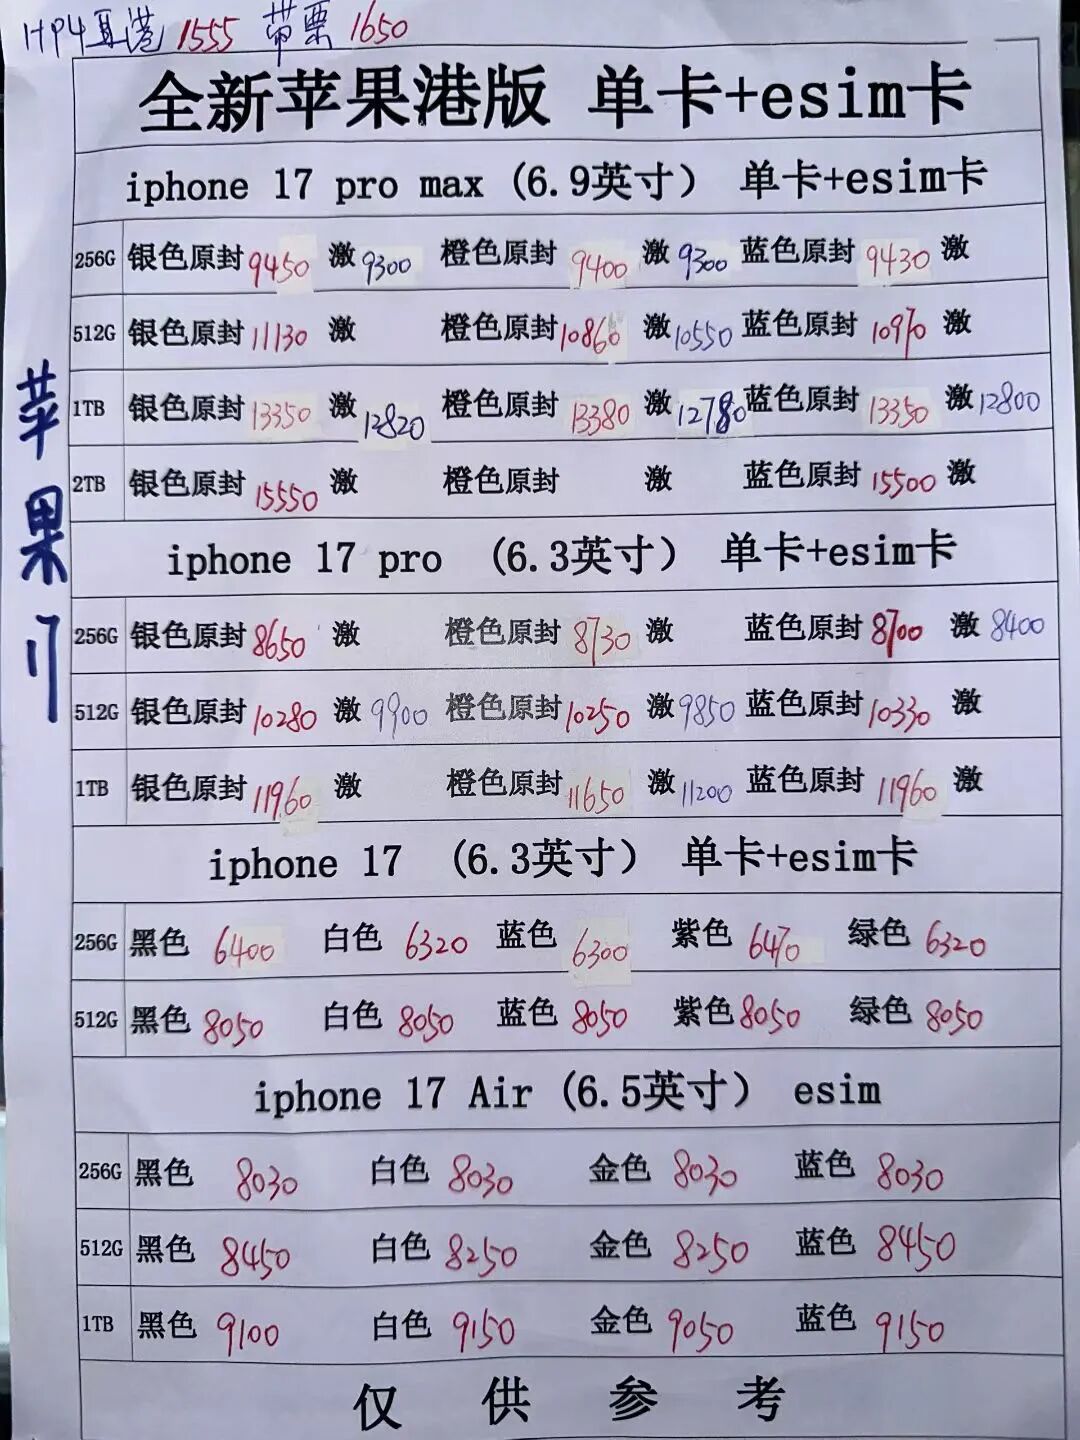 HP4耳港 1555 带票 1650
全新苹果港版 单卡+esim卡
iphone 17 pro max (6.9英寸) 单卡+esim卡
256G 银色原封 9450 激 9300 橙色原封 9400 激 9300 蓝色原封 9430 激
512G 银色原封 11130 激 橙色原封 10860 激 10550 蓝色原封 10970 激
1TB 银色原封 13350 激 12820 橙色原封 13380 激 12780 蓝色原封 13350 激 12800
2TB 银色原封 15550 激 橙色原封 激 蓝色原封 15500 激
iphone 17 pro (6.3英寸) 单卡+esim卡
256G 银色原封 8650 激 橙色原封 8730 激 蓝色原封 8700 激 8400
512G 银色原封 10280 激 9900 橙色原封 10250 激 9850 蓝色原封 10330 激
1TB 银色原封 11960 激 橙色原封 11650 激 11200 蓝色原封 11960 激
iphone 17 (6.3英寸) 单卡+esim卡
256G 黑色 6400 白色 6320 蓝色 6300 紫色 6470 绿色 6320
512G 黑色 8050 白色 8050 蓝色 8050 紫色 8050 绿色 8050
iphone 17 Air (6.5英寸) esim
256G 黑色 8030 白色 8030 金色 8030 蓝色 8030
512G 黑色 8450 白色 8250 金色 8250 蓝色 8450
1TB 黑色 9100 白色 9150 金色 9050 蓝色 9150
仅供参考
苹果